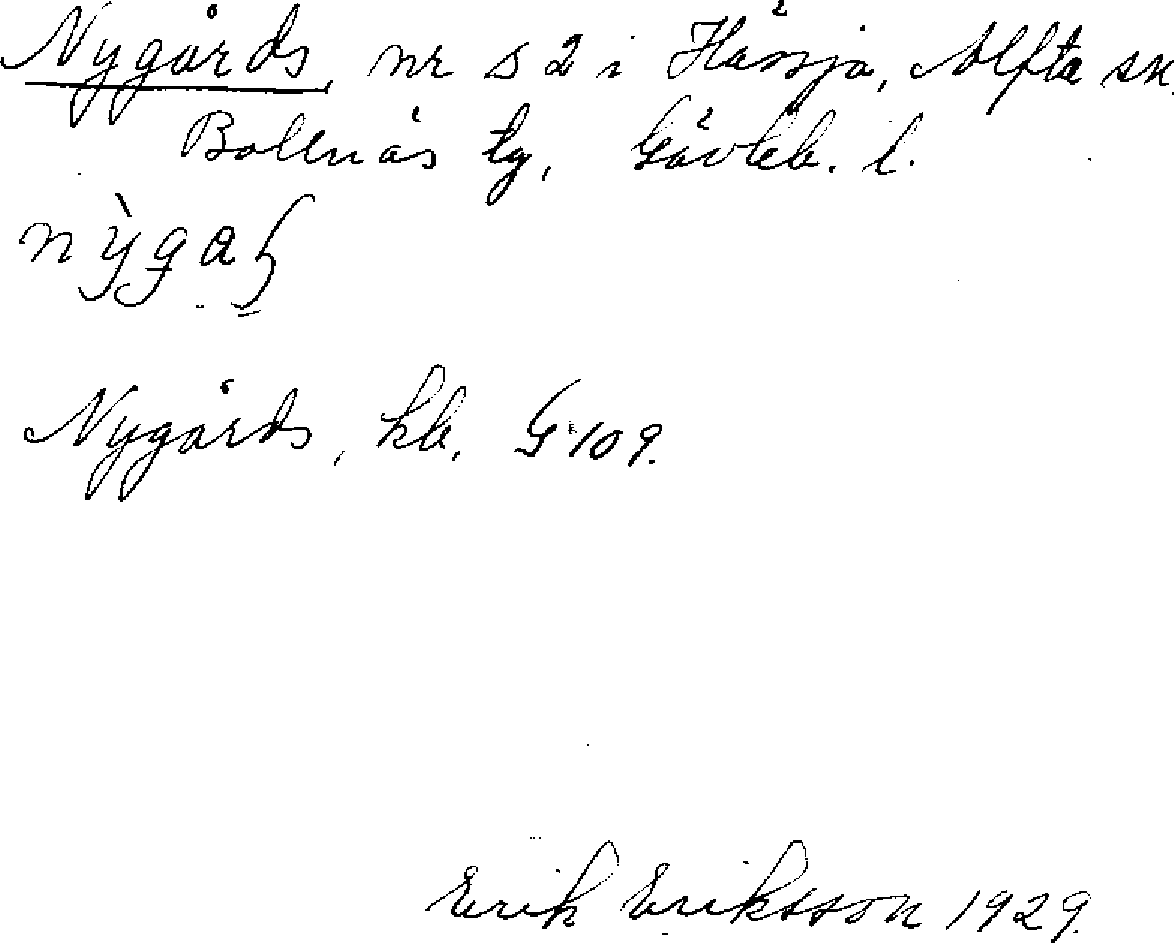 Nygårds, nr s 2 i Hässja, Alfta sn.
Bollnäs tg, Gävleb. l.
Nygårds, kb. G 109.
Erik Eriksson 1929.